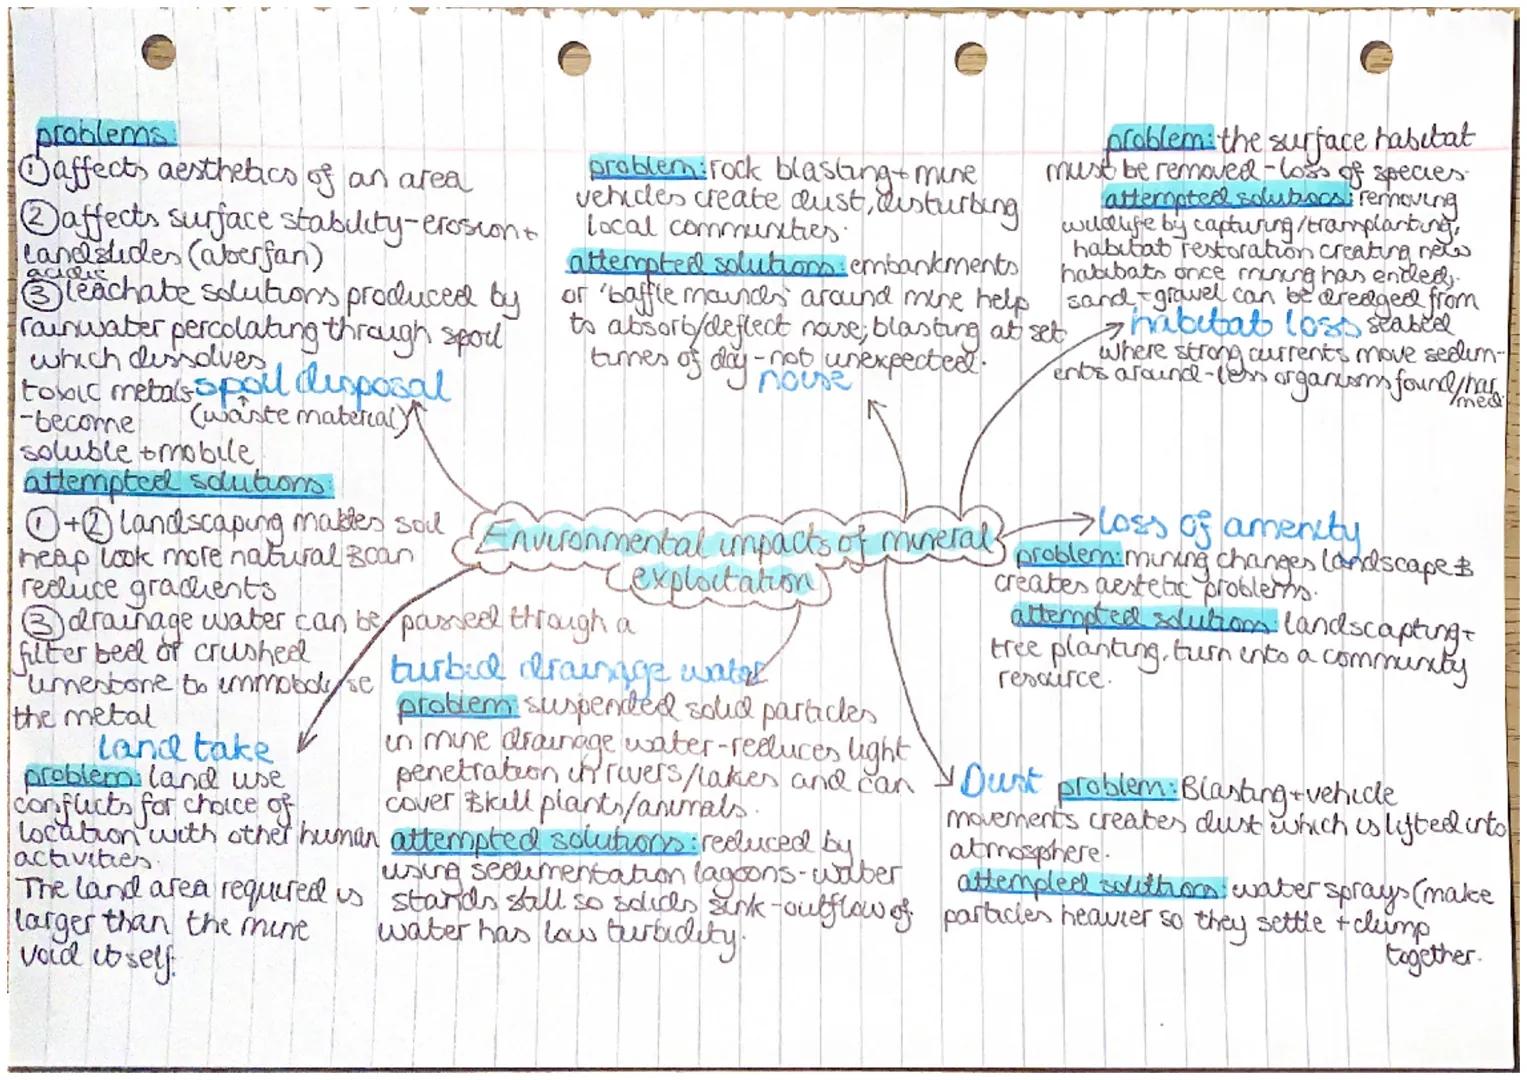 problems:
① affects aesthetics of an area
② affects surface stability-erosion+
landslides (aberfan)
acidic
③ leachate solutions produced by
rainwater percolating through spoil
which dissolves
toxic metals
-become
soluble + mobile
spoil disposal
(waste material)
attempted solutions:
① + ② landscaping makes soil
heap look more natural & can
reduce gradients
③ drainage water can be passed through a
filter bed of crushed
limestone to immobolyse
the metal
problem: rock blasting + mine
vehicles create dust, disturbing
local communities.
attempted solutions: embankments
or 'baffle mounds' around mine help
to absorb/deflect noise; blasting at set
times of day - not unexpected.
noise
problem: the surface habitat
must be removed - loss of species.
attempted solutions: removing
wildlife by capturing/transplanting,
habitat restoration creating new
habitats once mining has ended,
sand + gravel can be dredged from
habitat loss seabed
where strong currents move sedim-
ents around - less organisms found/har
med
Environmental impacts of mineral
exploitation
loss of amenity
problem: mining changes landscape &
creates aestetic problems.
attempted solutions: landscapting +
tree planting, turn into a community
resource.
land take
problem: land use
conflicts for choice of
location with other human
activities.
The land area required is
larger than the mine
void itself.
turbid drainage water
problem: suspended solid particles
in mine drainage water - reduces light
penetration in rivers/lakes and can
cover & kill plants/animals.
attempted solutions: reduced by
using sedimentation lagoons - water
stands still so solids sink - outflow of
water has low turbidity.
Dust problem: Blasting + vehicle
movements creates dust which is lifted into
atmosphere.
attempted solutions: water sprays (make
particles heavier so they settle + clump
together.